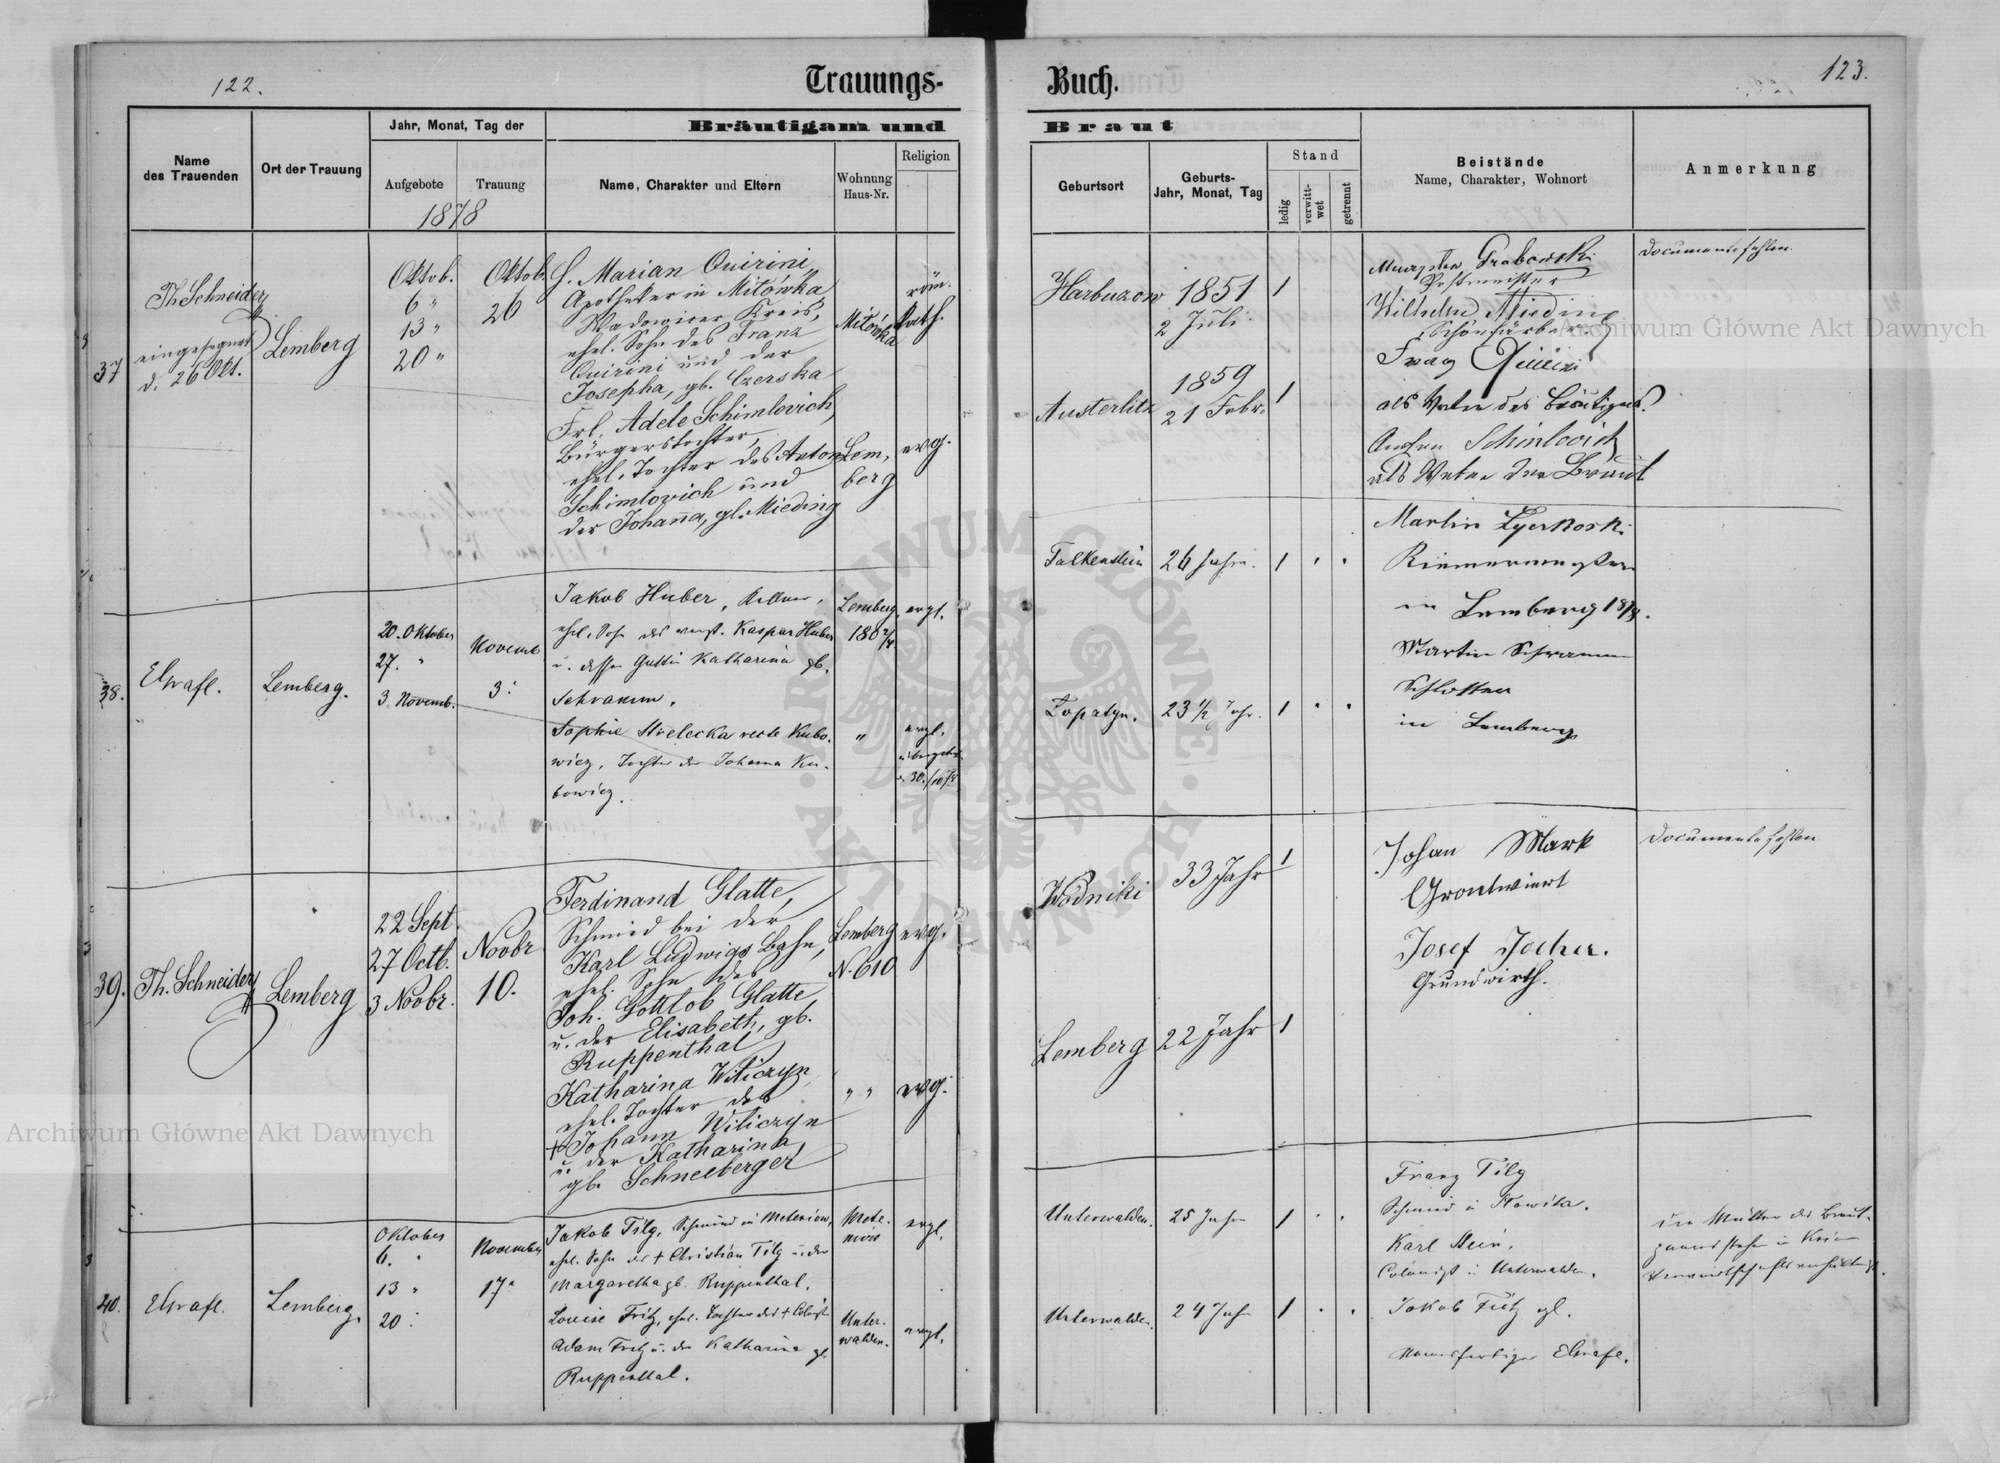 122.
Trauungs-
Jahr, Monat, Tag der
Bräutigam und
Name
des Trauenden
Ort der Trauung
Aufgebote
Trauung
Name, Charakter und Eltern
Wohnung
Haus-Nr.
Religion
1878
37
Th. Schneider
eingesegnet
d. 26 Okt.
Lemberg
Oktob.
6 "
13 "
20 "
Oktob.
26
H. Marian Quirini,
Apotheker in Milówka
Wadowicer Kreis,
ehel. Sohn des Franz
Quirini und der
Josepha, gb. Czerska
Milówka
röm.
kath.
Frl. Adele Schimlovich,
Bürgerstochter,
ehel. Tochter des Anton
Schimlovich und
der Johanna, gb. Mieding
Lem,
berg
evg.
38.
Elsrafl.
Lemberg.
20. Oktober
27. "
3. Novemb.
Novemb
3.
Jakob Huber, Kellner,
ehel. Sohn des verst. Kaspar Huber
u. dessen Gattin Katharina gb.
Schramm.
Lemberg,
180 2/4
evgl.
Sophie Strelecka recte Kubo-
wicz, Tochter der Johanna Ku-
bowicz.
"
evgl.
39.
Th. Schneider
Lemberg
22 Sept.
27 Octb.
3 Novbr.
Novbr
10.
Ferdinand Glatte,
Schmied bei der
Karl Ludwigs Bahn,
ehel. Sohn des
Joh. Gottlob Glatte,
u. der Elisabeth, gb.
Ruppenthal
Lemberg
N. 610
evg.
Katharina Witiczyn,
ehel. Tochter des
+ Johann Witiczyn
u. der Katharina,
gb. Schneeberger
" "
evg.
40.
Lemberg,
Oktober
6. "
13 "
20.
November
17.
Jakob Filg, Schmied in Meteniow,
ehel. Sohn des + Christian Filg u. der
Margaretha gb. Ruppenthal.
evgl.
Louise Fritz, ehel. Tochter des + Colonist
Adam Fritz u. der Katharina gb.
Ruppenthal.
Unter-
walden.
evgl.
123.
Buch.
Braut
Geburtsort
Geburts-
Jahr, Monat, Tag
Stand
ledig
verwitt-
wet
getrennt
Beistände
Name, Charakter, Wohnort
Anmerkung
Harbuzow
1851
2 Juli.
1
Grabowski
Postmeister
Wilhelm Mieding
Schönfärber
Franz Quirini
als Vater des Bräutigams.
Documente fehlen.
Austerlitz
1859
21 Febr.
1
Anton Schimlovich
als Vater der Braut
Falkenstein
26 Jahre.
1
Martin
Riemermeister
in Lemberg
Martin Schramm
Schlosser
in Lemberg
Lopatyn.
23 1/2 Jahr.
1
Wodniki
33 Jahr
1
Johan Mark
Grontwiert
Josef Jocher.
Grundwirth.
Documente fehlen.
Lemberg
22 Jahr
1
Unterwalden.
25 Jahre
1
Franz Filg
Schmied in
Karl Stein,
Colonist in Unterwalden.
Unterwalden.
24 Jahre
1
Archiwum Główne Akt Dawnych
Archiwum Główne Akt Dawnych
ARCHIWUM GŁÓWNE · AKT DAWNYCH ·